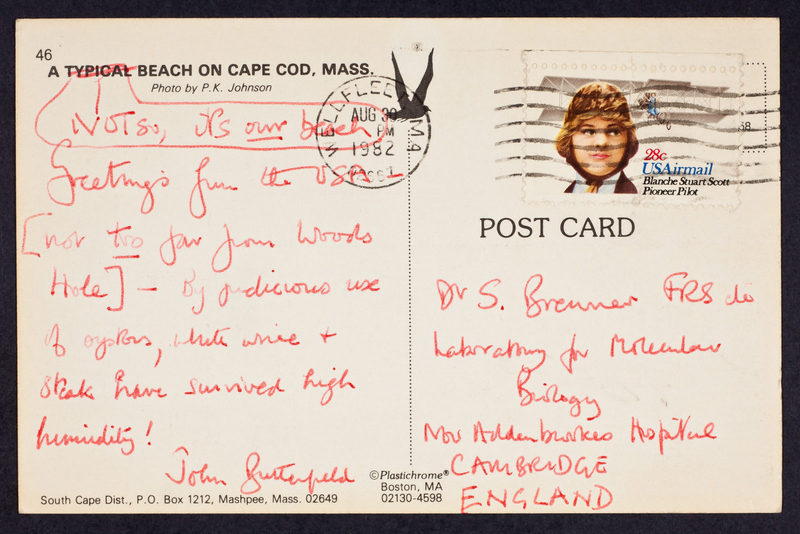 46
A TYPICAL BEACH ON CAPE COD, MASS.
Photo by P.K. Johnson
Not so, it's our beach
Greetings from the USA –
[not too far from Woods
Hole] – By judicious use
of oysters, white wine +
steak have survived high
humidity!
John Butterfield
South Cape Dist., P.O. Box 1212, Mashpee, Mass. 02649
©Plastichrome®
Boston, MA
02130-4598
WELLFLEET MA
AUG 30
PM
1982
28c
USAirmail
Blanche Stuart Scott
Pioneer Pilot
POST CARD
Dr S. Brenner FRS etc
Laboratory for Molecular
Biology
New Addenbrookes Hospital
CAMBRIDGE
ENGLAND